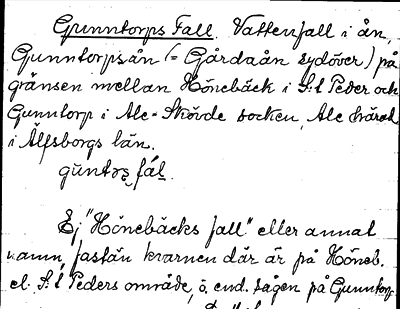 Gunntorps Fall. Vattenfall i ån,
Gunntorpsån (= Gårdaån sydöver) på
gränsen mellan Hönebäck i S:t Peder och
Gunntorp i Ale-Skövde socken, Ale härad
i Älfsborgs län.
guntɔʂ fál.
Ej "Hönebäcks fall" eller annat
namn, fastän kvarnen där är på Höneb.
el. S:t Peders område, o. end. sågen på Gunntorp.